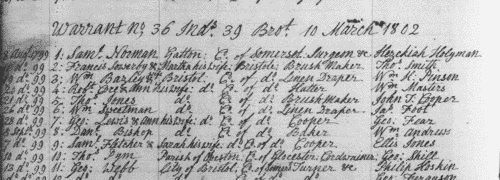 Warrant No. 36 Inds. 39 Brot. 10 March 1802
1: Saml. Norman Yatton Co. of Somerset Surgeon & Hezekiah Holyman
2: Francis & Martha his wife Bristol Brush Maker Thos. Smith
do. 99 3: Wm. Bazley Bristol Co. of do. Linen Draper Wm. K. Pinson
do. 99 4: Robt. & Ann his wife do. Co. of do. Hatter Wm. Masters
do. 99 5: Thos. Jones do. Co. of do. Brush Maker John T. Cooper
do. 99 6: Wm. do. Co. of do. Linen Draper Jas. Foot
do. 99 7: Geo: Lewis & Ann his wife do. Co. of do. Cooper Geo: Fear
99 8: Danl. Bishop do. Co. of do. Baker Wm. Andrews
do. 99 9: Saml. Fletcher & Sarah his wife do. Co. of do. Cooper Ellis Jones
do. 99 10: Thos. Pym Parish of Co. of Glocester Cordwainer Geo: Shill
do. 99 11: Geo: Webb City of Bristol Co. of Turner & Philip Hoskin
Geo: Ferguson